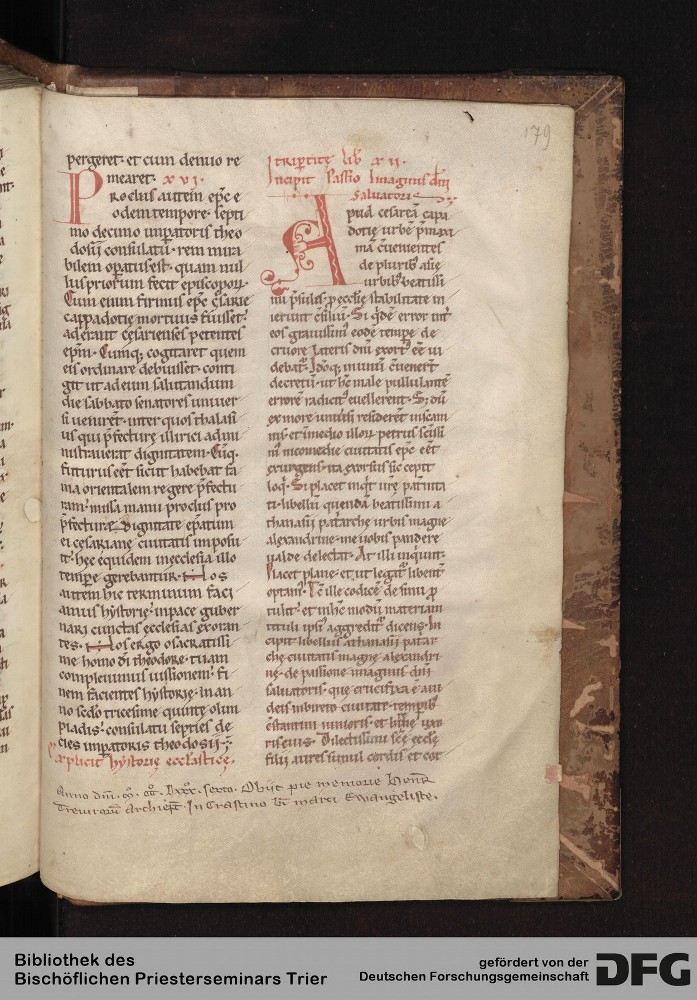 179
pergeret· et cum denuo re
mearet· xvi·
Proclus autem epc e
odem tempore· septi
mo decimo impatoris theo
dosii consulatu· rem mira
bilem opatus est· quam nul
lus priorum fecit episcoporum·
Cum enim firmus epc cesarie
cappadotie mortuus fuisset·
aderant cesarienses petentes
epm· Cumq; cogitaret quem
eis ordinare debuisset· conti
git ut ad eum salutandum
die sabbato senatores univer
si venirent· inter quos thalasi
us qui pfecture illirici admi
nistraverat dignitatem· Cumq·
futurus eet sicut habebat fa
ma orientalem regere pfectu
ram· missa manu proclus pro
pfectura dignitate epatum
ei cesariane civitatis imposu
it· hec equidem in ecclesia illo
tempe gerebantur· Nos
autem hic terminum faci
amus hystorie· in pace guber
nari cunctas ecclesias exoran
tes· Nos ergo o sacratissi
me homo di theodore· tuam
complevimus iussionem· fi
nem facientes hystorie· in an
no scdo tricesime quinte olim
piadis· consulatu septies de
cies impatoris theodosii·
Explicit hystorie ecclesiastice·
Anno dni· m· cc· lxxx· sexto· Obiit pie memorie Henric
Trevirorum Archiepc· In Crastino bi marci Ewangeliste·
tripertite lib xii·
Incipit Passio Imaginis dni
salvatoris
Apud cesaream capa
dotie urbem
convenientes
de pluribus asie
urbibus beatissi
mi psules p ecclesie stabilitate in
ierunt consilium· Si qdem error int
eos gravissimus eode tempe de
cruore lateris dni exortus eet vi
debat· Idoq; in unum convenert
decretum· ut hc male pullulante
errore radicit evellerent· S; dum
ex more universi resideret in scam
nis· et in medio illorum petrus scissi
mus nicomedie civitatis epc eet
exurgens· ita exorsus sic cepit
loqi· Si placet inquit vre paternita
ti· libellum quendam beatissimi a
thanasii patarche urbis magne
alexandrine· me vobis pandere
valde delectat· At illi inquiunt·
Placet plane· et ut legatur libenter
optamus· Tc ille codice de sinu p
tulit· et in hc modum materiam
tituli ipsius aggreditur dicens· In
cipit libellus athanasii patar
che civitatis magne alexandri
ne· de passione imaginis dni
salvatoris· que crucifixa e a iu
deis in birito civitate· temporib
constantini iunioris· et hyrene uxo
ris eius· Dilectissimi sce eccle
filii aures simul cordis et cor
Bibliothek des
Bischöflichen Priesterseminars Trier
gefördert von der
Deutschen Forschungsgemeinschaft
DFG